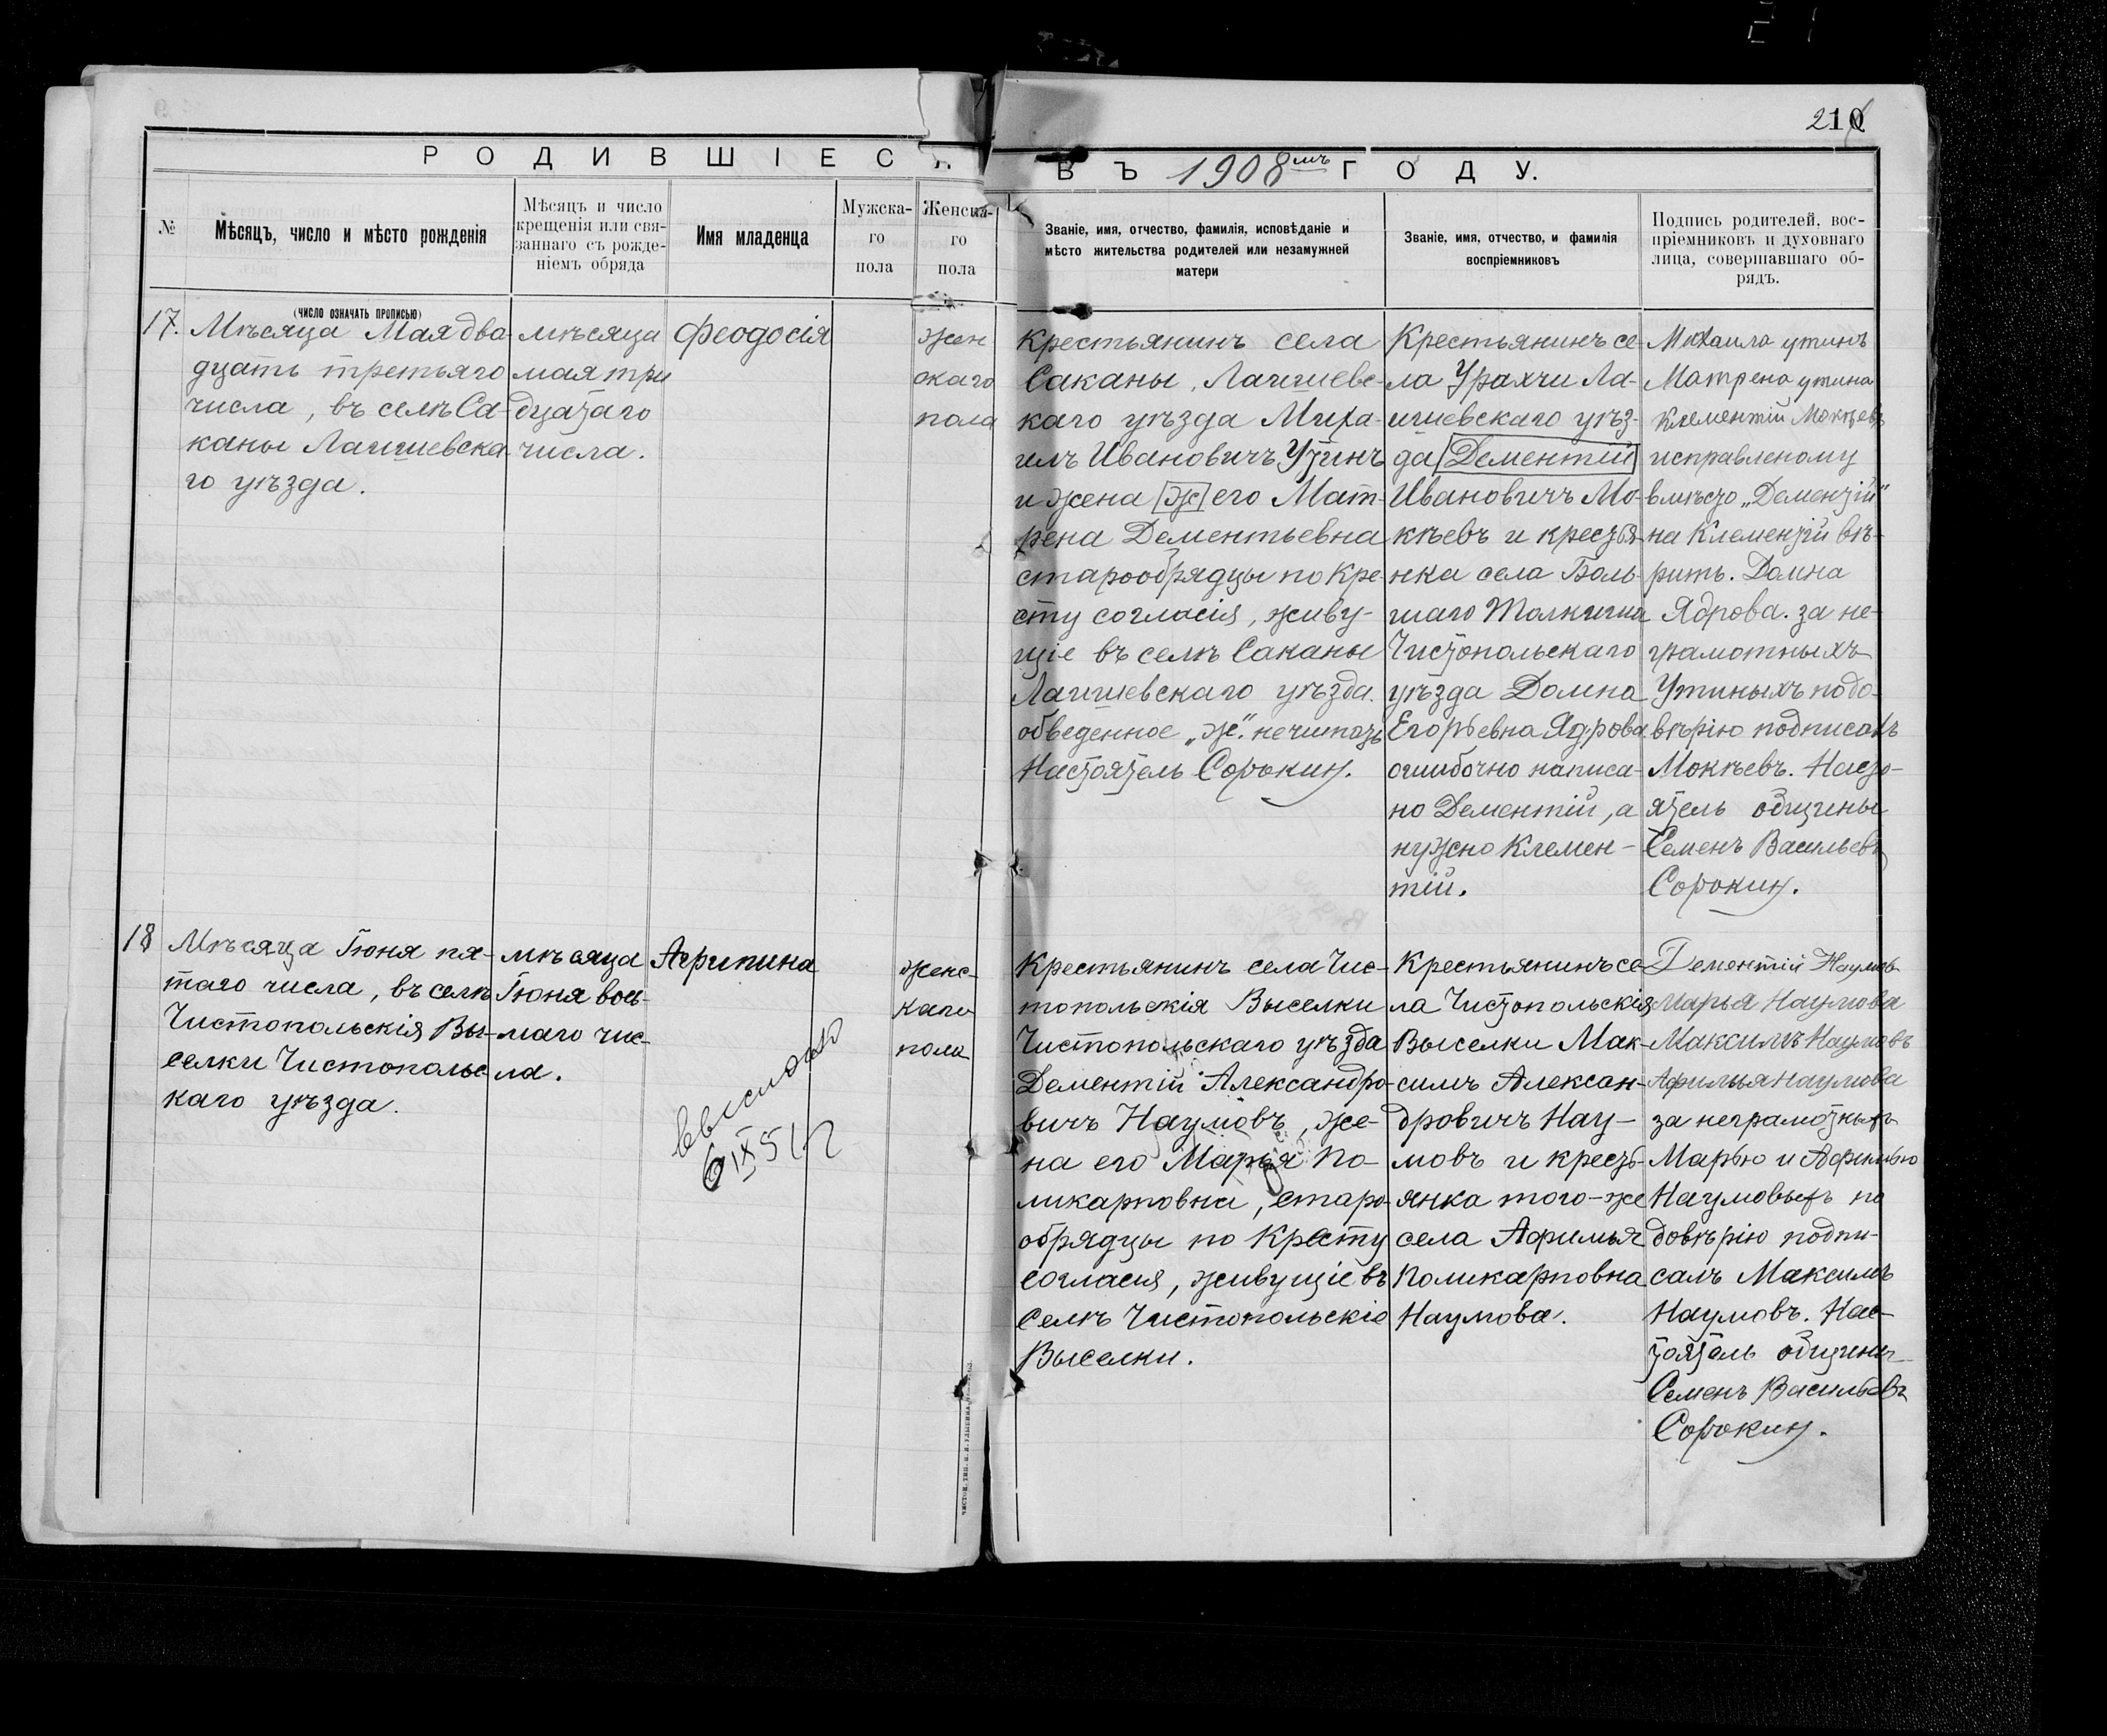 210
РОДИВШІЕСЯ ВЪ 1908мъ ГОДУ.
№
Мѣсяцъ, число и мѣсто рожденія
(число означать прописью)
Мѣсяцъ и число
крещенія или свя-
заннаго съ рожде-
ніемъ обряда
Имя младенца
Мужска-
го
пола
Женска-
го
пола
Званіе, имя, отчество, фамилія, исповѣданіе и
мѣсто жительства родителей или незамужней
матери
Званіе, имя, отчество, и фамилія
воспріемниковъ
Подпись родителей, вос-
пріемниковъ и духовнаго
лица, совершавшаго об-
рядъ.
17.
Мѣсяца Мая два-
дцать третьяго
числа, въ селѣ Са-
каны Лаишевска-
го уѣзда.
мѣсяца
мая три
дцатаго
числа.
Феодосія
жен
скаго
пола
Крестьянинъ села
Саканы, Лаишевс-
каго уѣзда Миха-
илъ Ивановичъ Утинъ
и жена ж его Мат-
рена Дементьевна
старообрядцы по Кре-
сту согласія, живу-
щіе въ селѣ Саканы
Лаишевскаго уѣзда.
обведенное „ж". не читать
Настоятель Сорокинъ.
Крестьянинъ се-
ла Урахчи Ла-
ишевскаго уѣз-
да Дементій
Ивановичъ Мо-
кѣевъ и крестья-
нка села Боль-
шаго Толкиша
Чистопольскаго
уѣзда Домна
Егорьевна Ядрова
ошибочно написа-
но Дементій, а
нужно Клемен-
тій.
Михаила утинъ
Матрена утина
Клементій Мокѣевъ
исправленому
вмѣсто „Дементій"
на Клементій вѣ-
рить. Домна
Ядрова. за не-
грамотныхъ
Утиныхъ по до-
вѣрію подписалъ
Мокѣевъ. Насто-
ятель общины
Семенъ Васильевъ
Сорокинъ.
18
Мѣсяца Іюня пя-
таго числа, въ селѣ
Чистопольскія Вы-
селки Чистопольс-
каго уѣзда.
мѣсяца
Іюня вось-
маго чис-
ла.
Агрипина
женс-
каго
пола
6 IX 51
Крестьянинъ села Чис-
топольскія Выселки
Чистопольскаго уѣзда
Дементій Александро-
вичъ Наумовъ, же-
на его Марья По-
ликарповна, старо-
обрядцы по Кресту
согласія, живущіе въ
селѣ Чистопольскіе
Выселки.
Крестьянинъ се-
ла Чистопольскія
Выселки Мак-
симъ Алексан-
дровичъ Нау-
мовъ и кресть-
янка того-же
села Афимья
Поликарповна
Наумова.
Дементій Наумовъ
Марья Наумова
Максимъ Наумовъ
Афимья Наумова
за неграмотныхъ
Марью и Афимью
Наумовыхъ по
довѣрію подпи-
салъ Максимъ
Наумовъ. Нас-
тоятель общины
Семенъ Васильевъ
Сорокинъ.